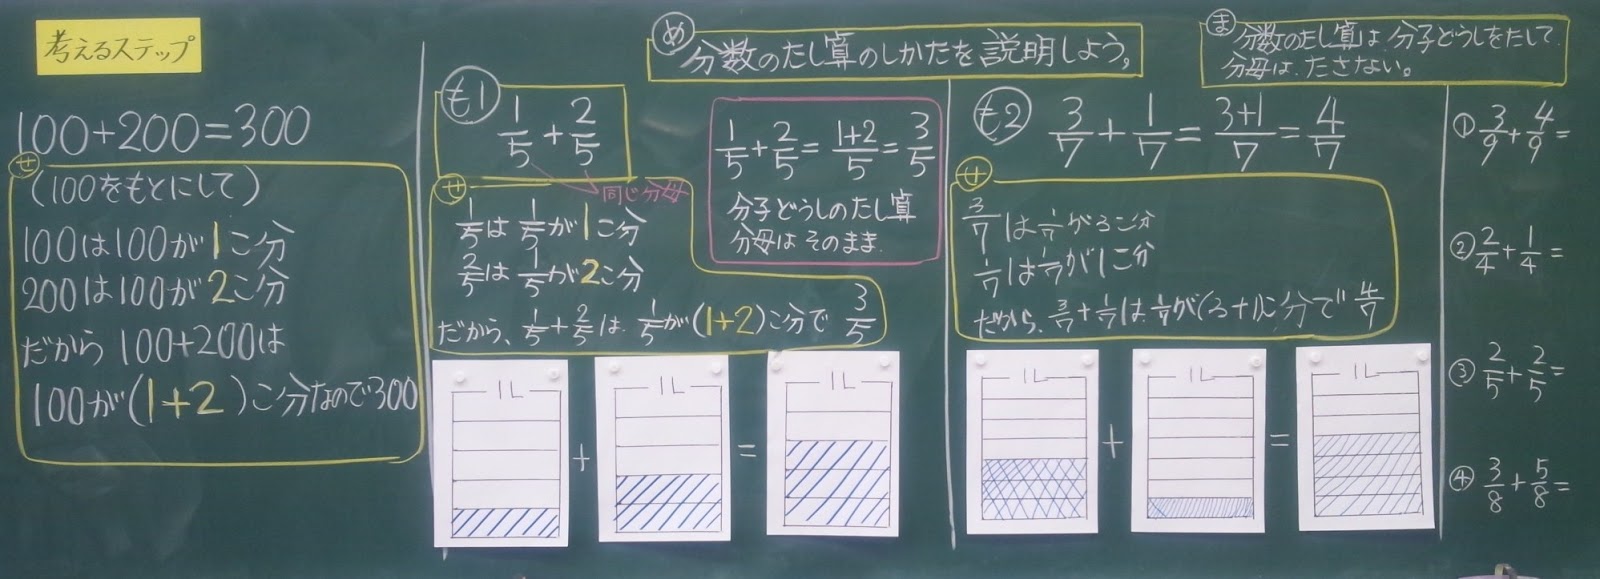 考えるステップ
100+200=300
せ
(100をもとにして)
100は100が1こ分
200は100が2こ分
だから 100+200は
100が(1+2)こ分なので300
め 分数のたし算のしかたを説明しよう。
も1
1/5+2/5
同じ分母
せ
1/5は 1/5が1こ分
2/5は 1/5が2こ分
だから、1/5+2/5は 1/5が(1+2)こ分で 3/5
1/5+2/5=1+2/5=3/5
分子どうしのたし算
分母はそのまま.
1L
+
1L
=
1L
も2 3/7+1/7=3+1/7=4/7
せ
3/7は1/7が3こ分
1/7は1/7が1こ分
だから、3/7+1/7は 1/7が(3+1)こ分で 4/7
1L
+
1L
=
1L
ま 分数のたし算は、分子どうしをたして
分母は、たさない。
① 3/9+4/9=
② 2/4+1/4=
③ 2/5+2/5=
④ 3/8+5/8=